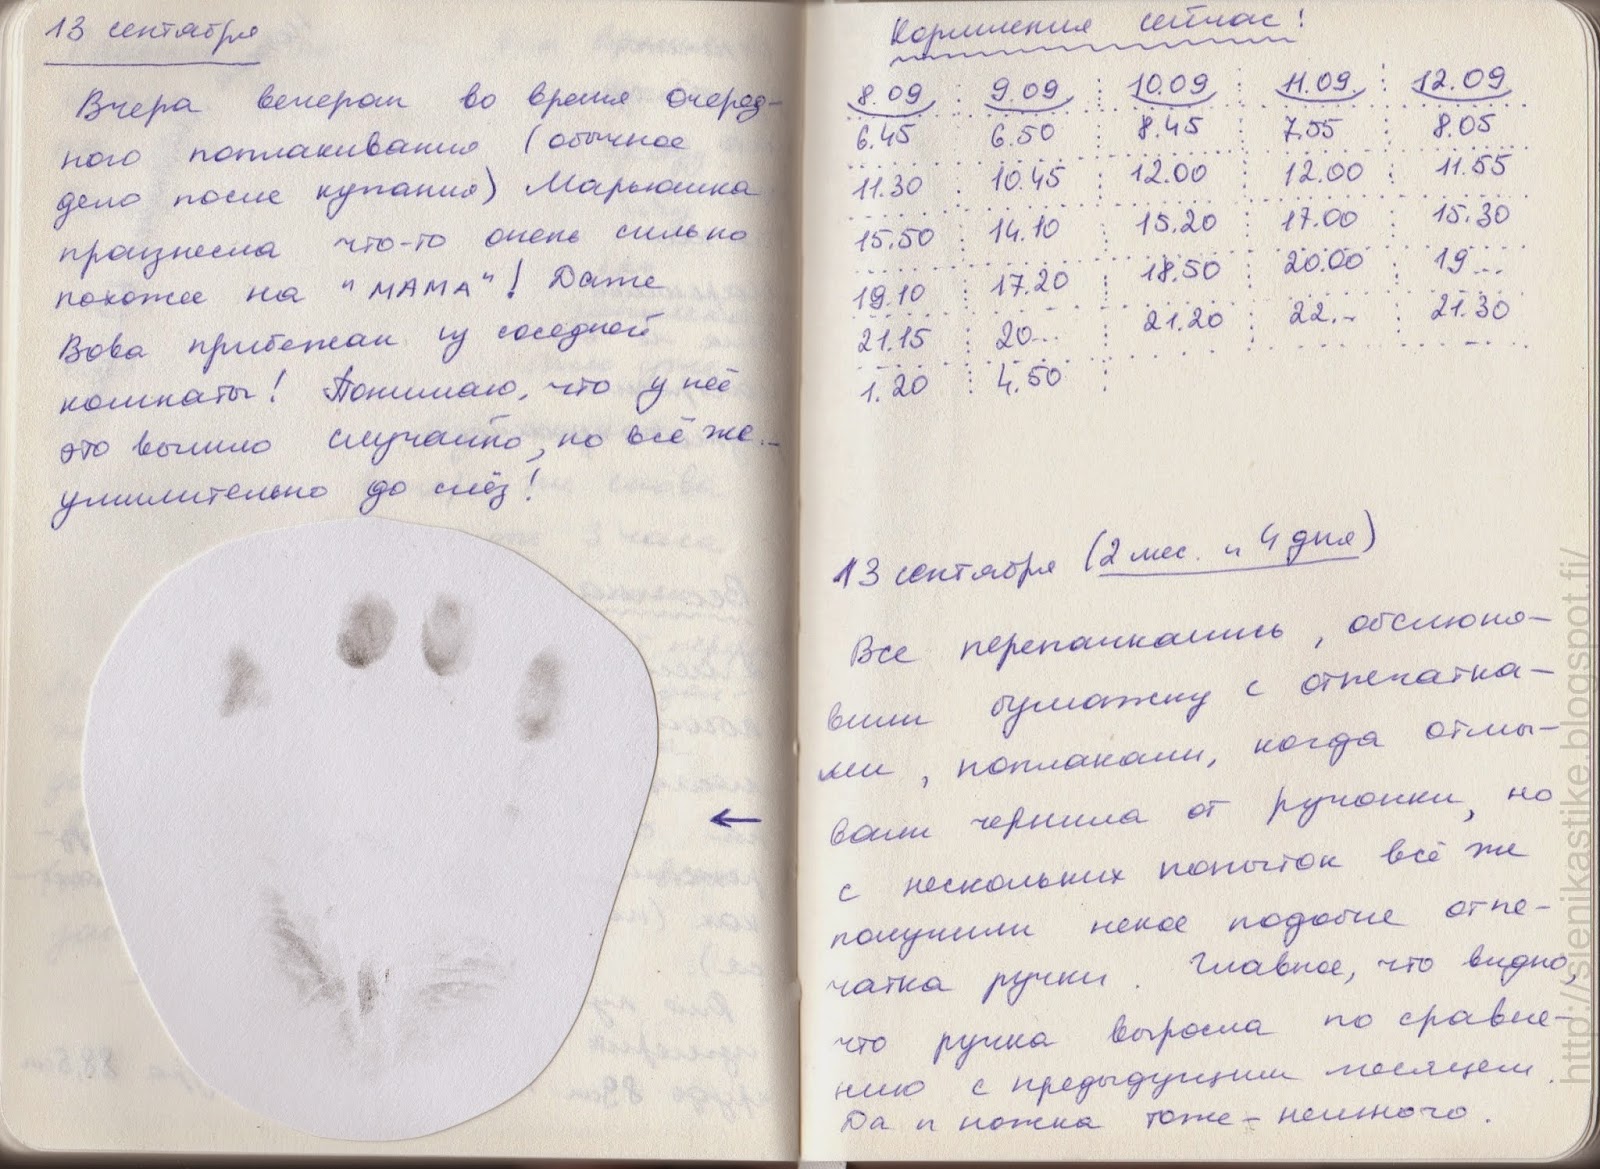 13 сентября
Вчера вечером во время очеред-
ного поплакивания (обычное
дело после купания) Марьюшка
произнесла что-то очень сильно
похожее на "МАМА"! Даже
Вова прибежал из соседней
комнаты! Понимаю, что у неё
это вышло случайно, но всё же...
умилительно до слёз!
Кормления сейчас!
8.09 9.09 10.09 11.09. 12.09
6.45 6.50 8.45 7.55 8.05
11.30 10.45 12.00 12.00 11.55
15.50 14.10 15.20 17.00 15.30
19.10 17.20 18.50 20.00 19...
21.15 20... 21.20 22... 21.30
1.20 4.50
13 сентября (2 мес. и 4 дня)
Все перепачкались, обслюня-
вили бумажку с отпечатка-
ми, поплакали, когда отмы-
вали чернила от ручонки, но
с нескольких попыток всё же
получили некое подобие отпе-
чатка ручки. Главное, что видно,
что ручка выросла по сравне-
нию с предыдущим месяцем.
Да и ножка тоже - немного.
http://sienikastike.blogspot.fi/